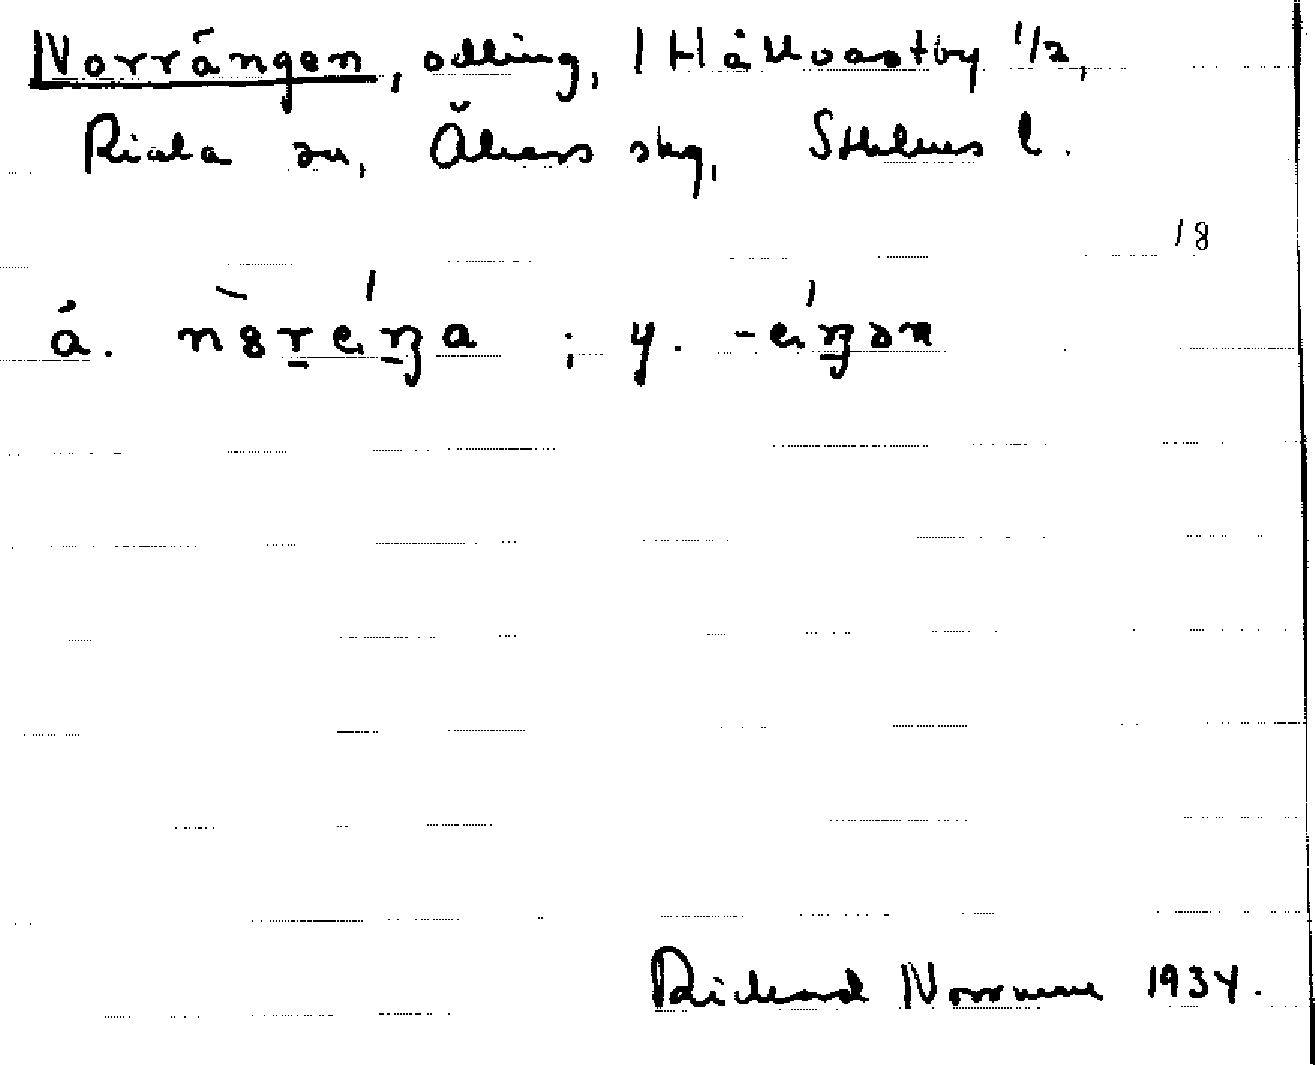 Norrängen, odling, 1 Hållvastby 1/2,
Riala sn, Åkers skg, Sthlms l.
18
ä. ; y.
Richard Norrman 1934.